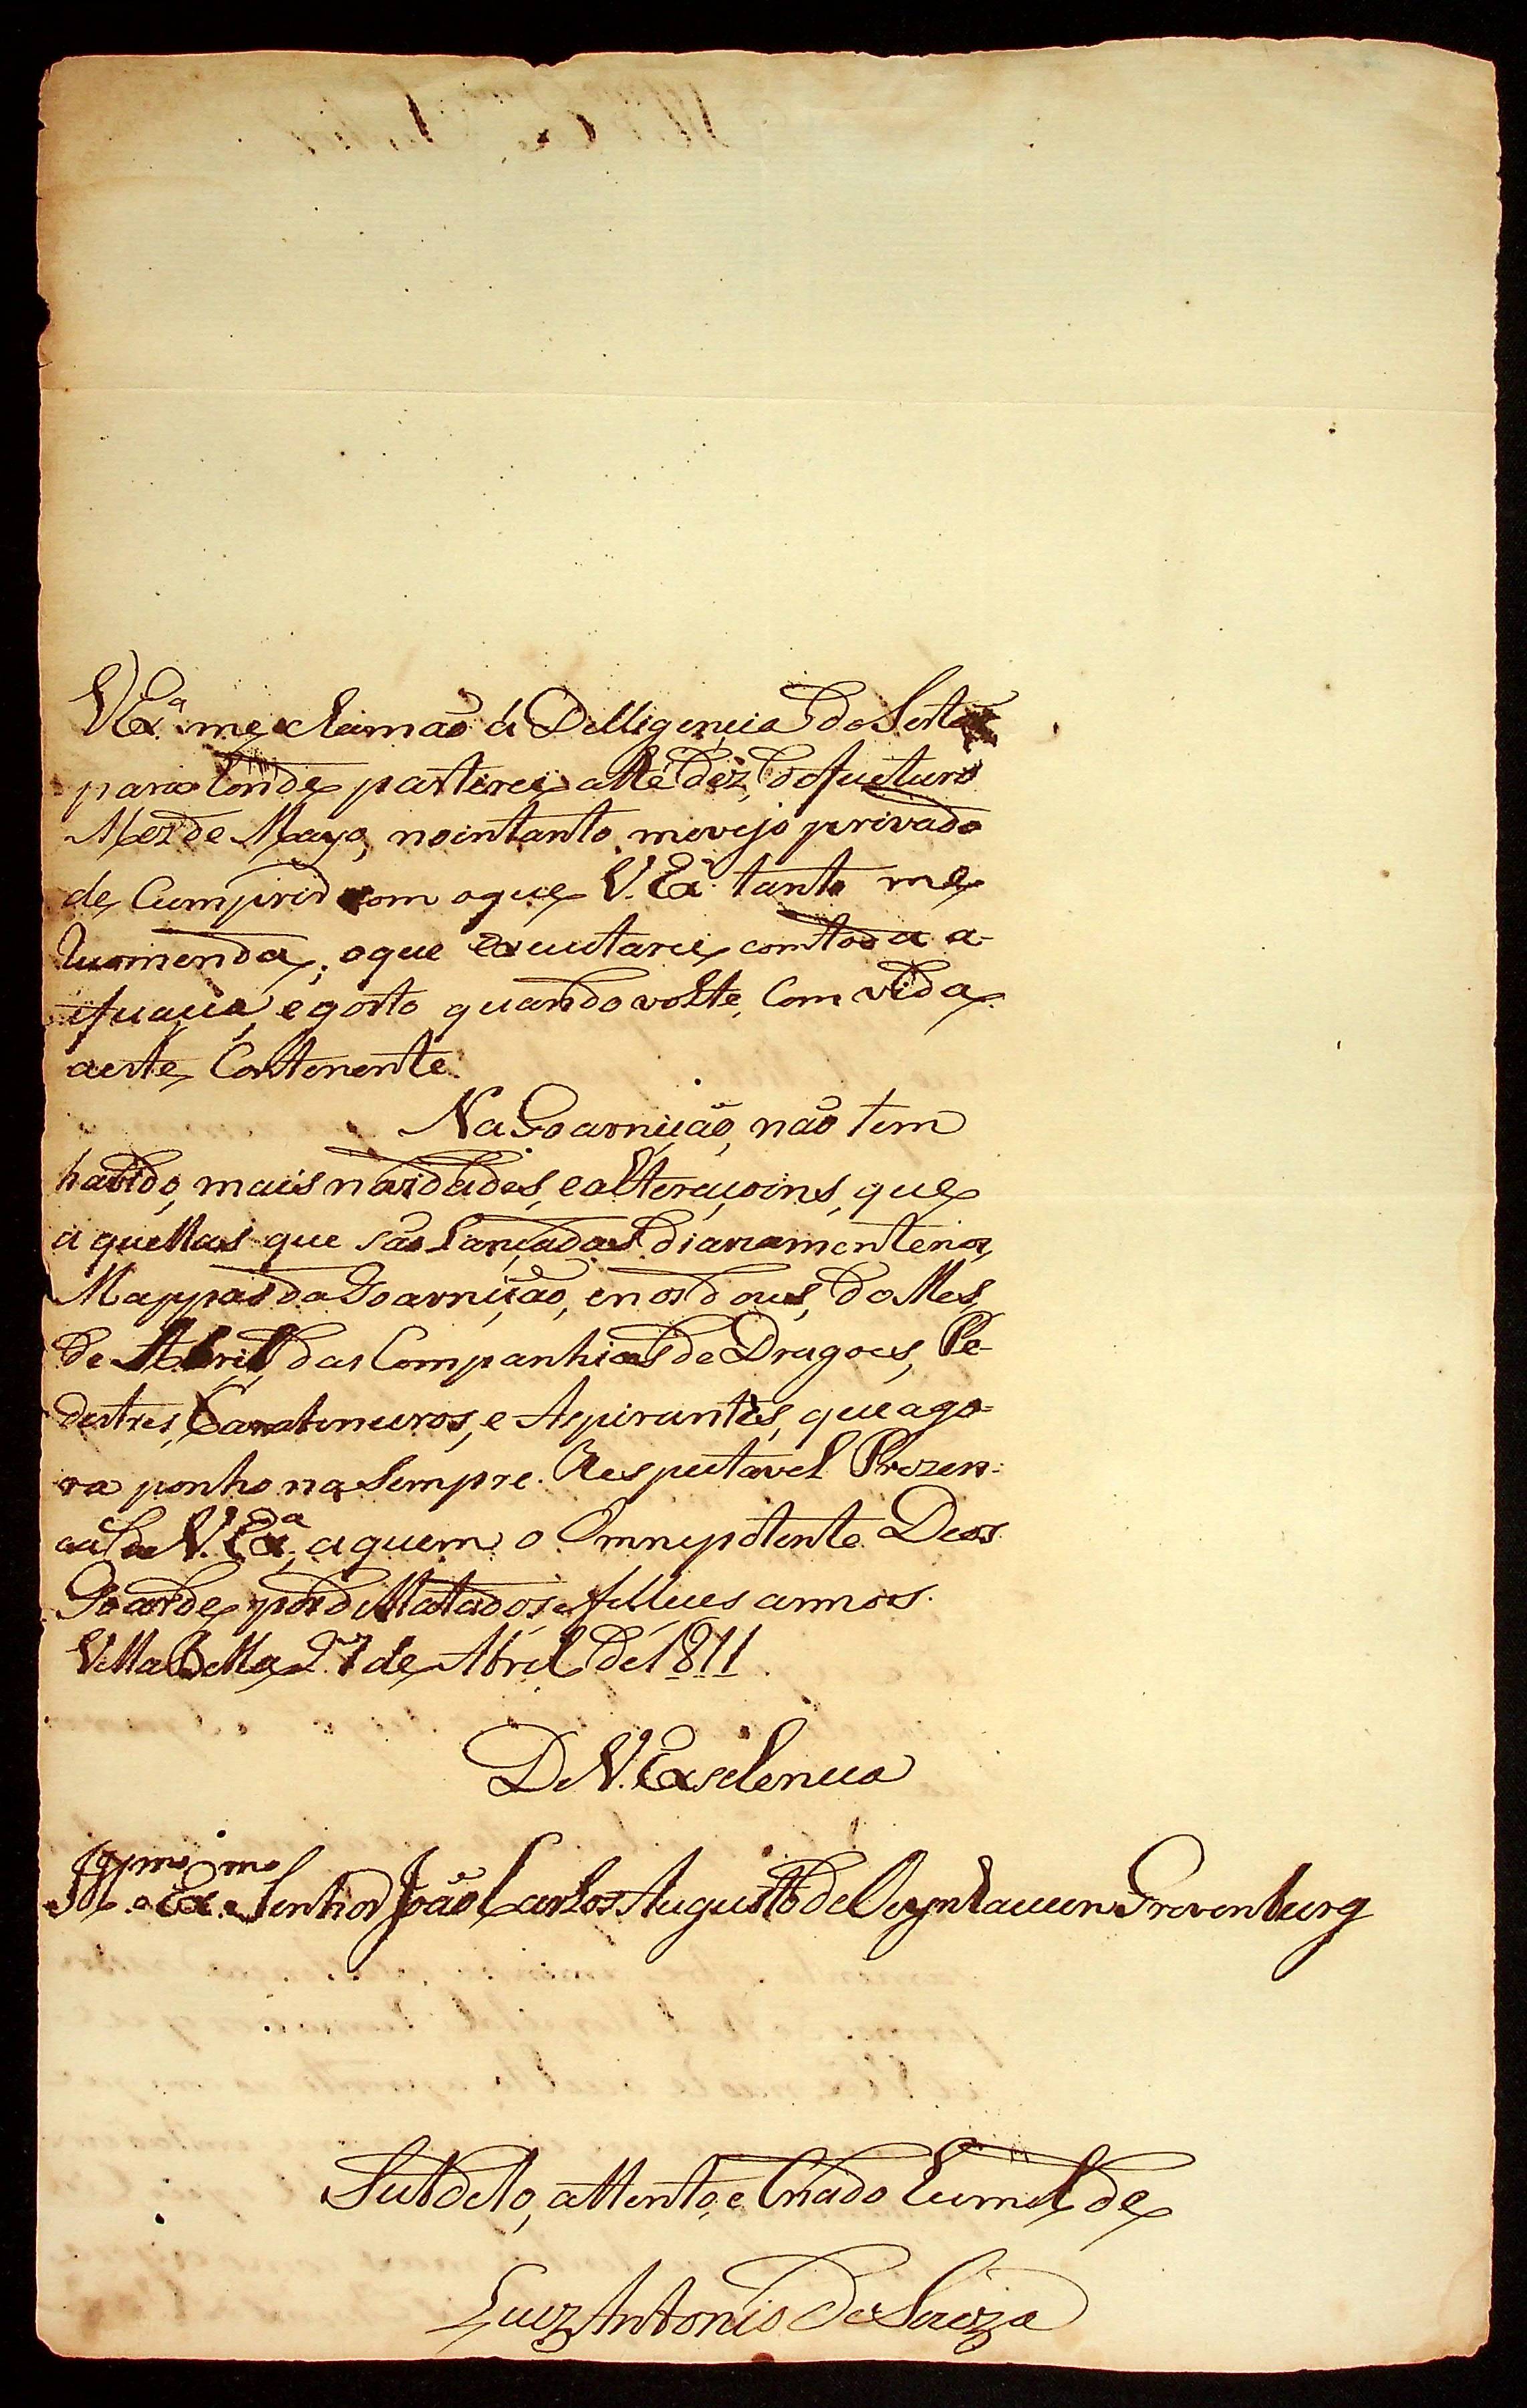 VEx.ª me chamaõ á Delligencia do Sertaõ
para londe partirei athé déz, do fucturo
Mes de Mayo, nointanto mevejo privado
de Cumprir com oque V. Exª. tanto me
Recomenda; oque executarei comtoda a
eficacia, egosto quandovolte, Com vida
aeste Contenente.
Na Goarnição, não tem
havido, mais novidades, ealteraçoins, que
aquellas que são Lançadas diariamentenos
Mappas da Goarnição, enos dous, do Mes
de Abril, das Companhias de Dragoes, Pe-
destres, Caratineiros, e Aspirantes, queago-
ra ponho na Sempre Respeitavel Prezen-
ca de V. Exª, aquem o Omnepotente Deos
Goarde por delatados efellices annos.
Villa Bella 27 de Abril de 1811.
De V. Exselencia
Ill.mo e Ex.mo Senhor João Carlos Augusto de Oeynhaucen Grevenburg
Subdeto, attento, e Criado Eumilde
Luiz Antonio De Souza